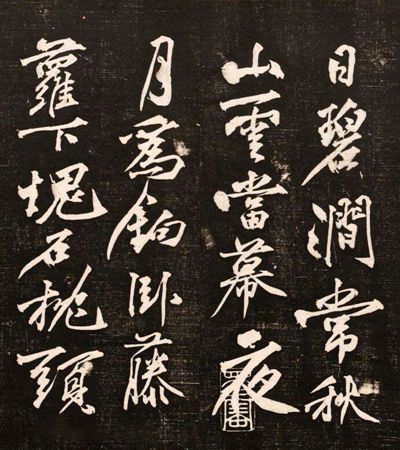 日碧澗常秋
山雲當幕夜
月爲鈎臥藤
蘿下塊石枕頭